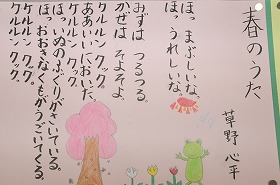 春のうた
草野 心平
ほっ まぶしいな。
ほっ うれしいな。
みずは つるつる。
かぜは そよそよ。
ケルルン クック。
ああいいにおいだ。
ケルルン クック。
ほっ いぬのふぐりがさいている。
ほっ おおきなくもがうごいてくる。
ケルルン クック。
ケルルン クック。